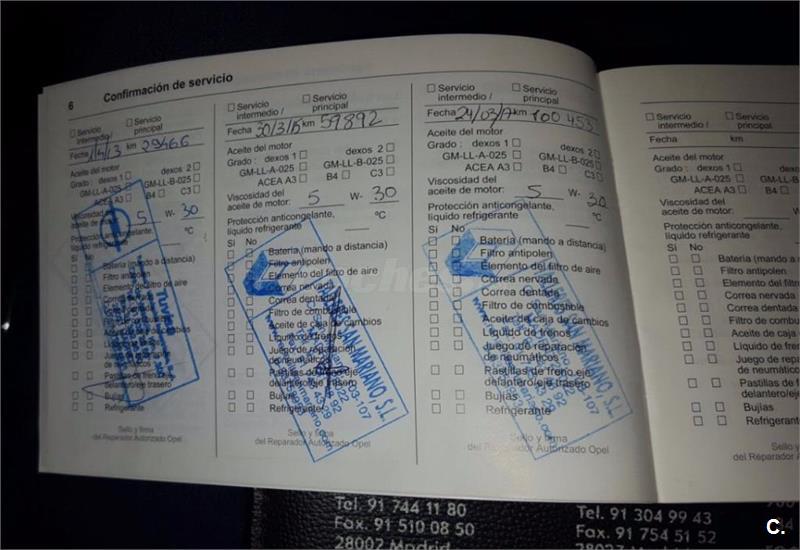 6 Confirmación de servicio
Servicio intermedio / Servicio principal
Fecha km 29466
Aceite del motor
Grado: dexos 1 dexos 2
GM-LL-A-025 GM-LL-B-025
ACEA A3 B4 C3
Viscosidad del
aceite de motor: 5 W- 30
Protección anticongelante,
líquido refrigerante °C
Sí No
Batería (mando a distancia)
Filtro antipolen
Elemento del filtro de aire
Correa nervada
Correa dentada
Filtro de combustible
Aceite de caja de cambios
Líquido de frenos
Juego de reparación
de neumáticos
Pastillas de freno eje
delantero/eje trasero
Bujías
Refrigerante
Sello y firma
del Reparador Autorizado Opel
Servicio intermedio / Servicio principal
Fecha 30/3/15 km 59892
Aceite del motor
Grado: dexos 1 dexos 2
GM-LL-A-025 GM-LL-B-025
ACEA A3 B4 C3
Viscosidad del
aceite de motor: 5 W- 30
Protección anticongelante,
líquido refrigerante °C
Sí No
Batería (mando a distancia)
Filtro antipolen
Elemento del filtro de aire
Correa nervada
Correa dentada
Filtro de combustible
Aceite de caja de cambios
Líquido de frenos
Juego de reparación
de neumáticos
Pastillas de freno eje
delantero/eje trasero
Bujías
Refrigerante
Sello y firma
del Reparador Autorizado Opel
MARIANO, S.L.
Servicio intermedio / Servicio principal
Fecha 24/03/17 km 100 453
Aceite del motor
Grado: dexos 1 dexos 2
GM-LL-A-025 GM-LL-B-025
ACEA A3 B4 C3
Viscosidad del
aceite de motor: 5 W- 30
Protección anticongelante,
líquido refrigerante °C
Sí No
Batería (mando a distancia)
Filtro antipolen
Elemento del filtro de aire
Correa nervada
Correa dentada
Filtro de combustible
Aceite de caja de cambios
Líquido de frenos
Juego de reparación
de neumáticos
Pastillas de freno eje
delantero/eje trasero
Bujías
Refrigerante
Sello y firma
del Reparador Autorizado Opel
MARIANO, S.L.
Servicio intermedio / Servicio principal
Fecha km
Aceite del motor
Grado: dexos 1
GM-LL-A-025 GM-LL-
ACEA A3 B4
Viscosidad del
aceite de motor: W-
Protección anticongelante,
líquido refrigerante
Sí No
Batería (mando a
Filtro antipolen
Elemento del filtro
Correa nervada
Correa dentada
Filtro de combu
Aceite de caja
Líquido de fren
Juego de repa
de neumático
Pastillas de f
delantero/eje
Bujías
Refrigerant
Sello y
del Reparador
Tel. 91 744 11 80
Fax. 91 510 08 50
28002 Madrid
Tel. 91 304 99 43
Fax. 91 754 51 52
C.